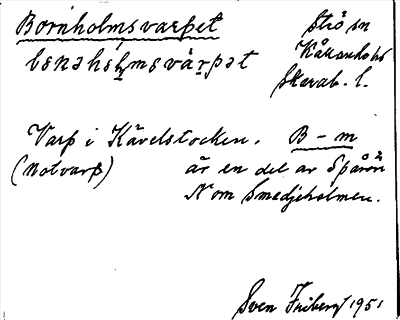 Bornholmsvarpet
Strö sn
Kåkinds hd
Skarab. l.
Varp i Kävelstocken. B-m
(Notvarp) är en del av Sparön
N om Smedjeholmen.
Sven Friberg 1951